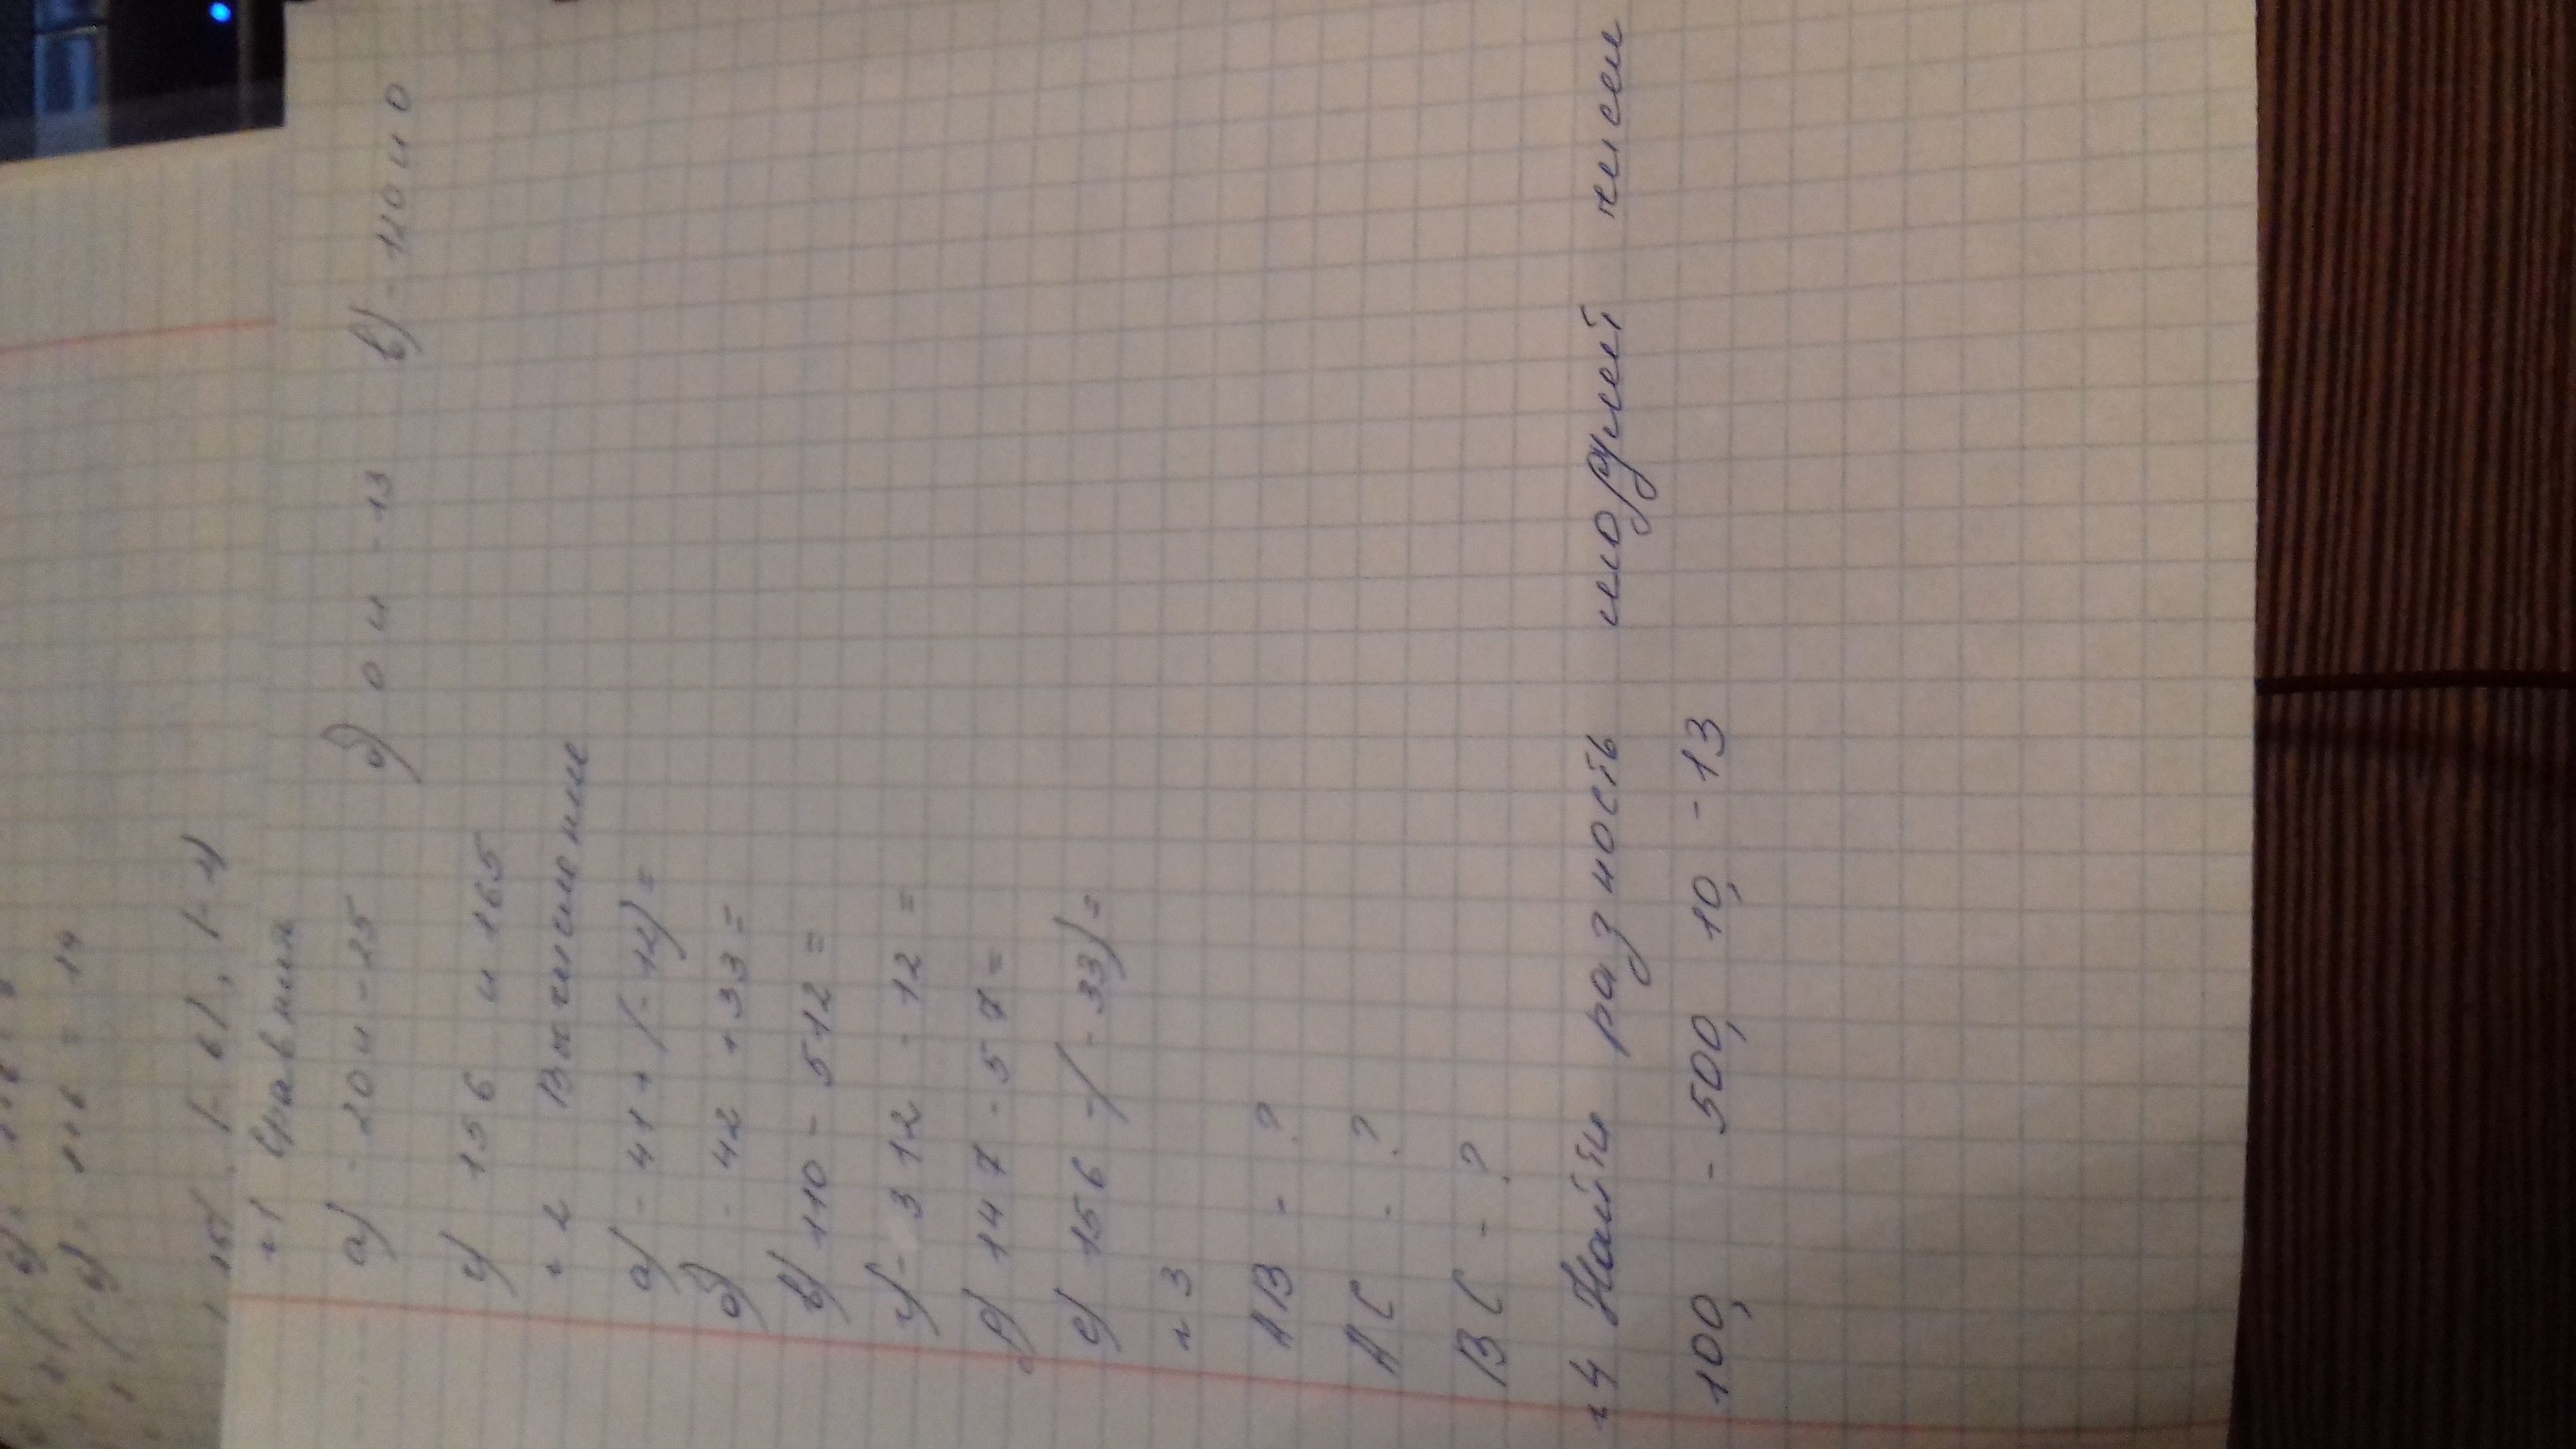 = 14
n1 Сравним
а) - 20 и - 25 б) 0 и - 13 в) - 120 и 0
г) 156 и 165
n 2 Вычисление
а) - 41 + (- 12) =
б) - 42 + 33 =
в) 110 - 512 =
г) - 312 - 12 =
д) 147 - 57 =
е) 156 - (- 33) =
n 3
AB - ?
AC - ?
BC - ?
n4 Найти разность модулей чисел
100, - 500, 10, - 13